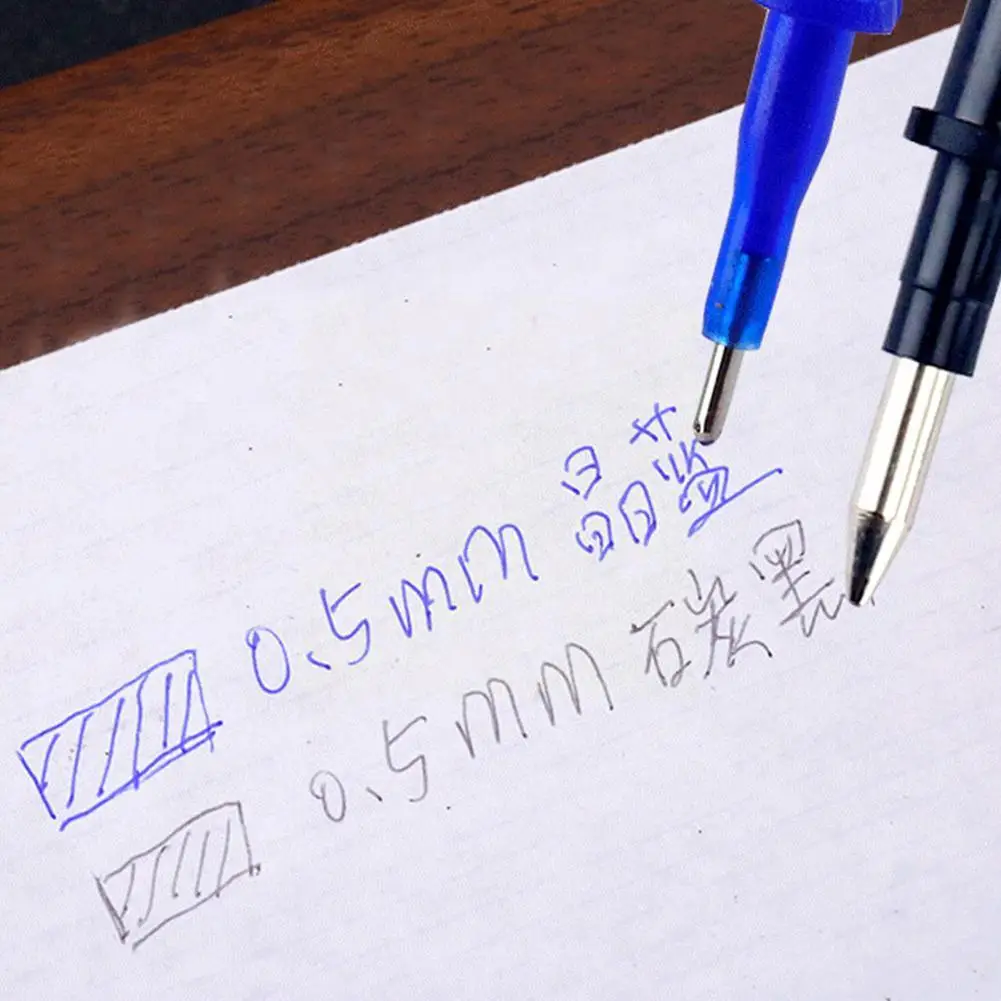 0.5mm 晶蓝
0.5mm 碳黑